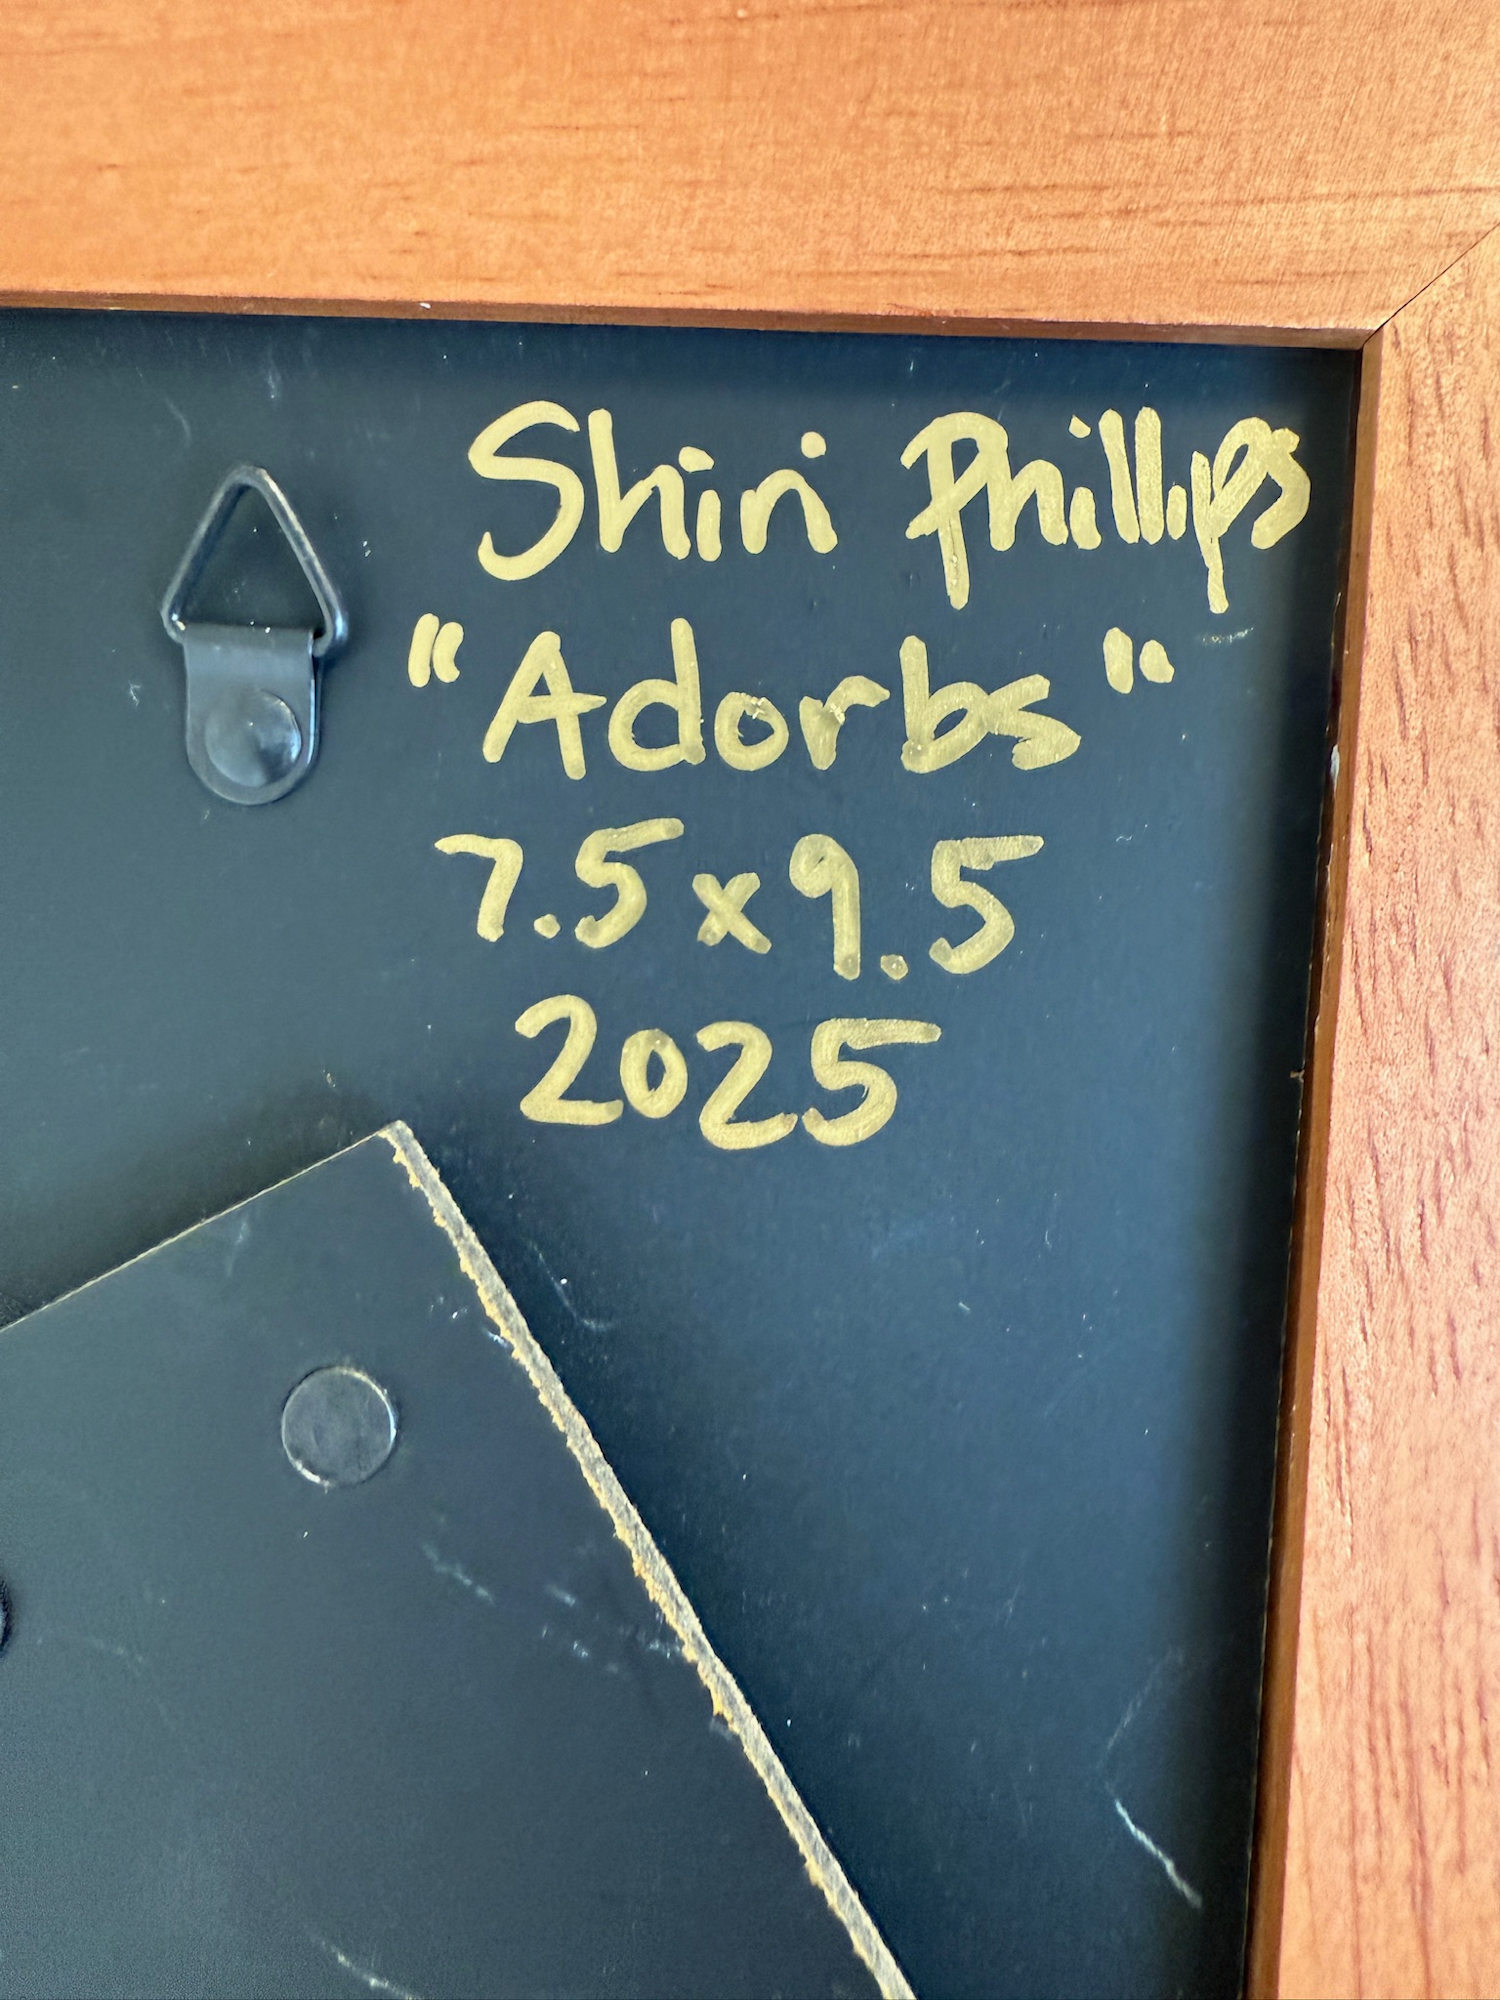 Shiri Phillips
"Adorbs"
7.5x9.5
2025